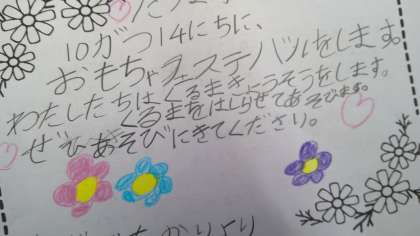 10がつ14にちに、
おもちゃフェステバルをします。
わたしたちはくるまきょうそうをします。
くるまをはしらせてあそびます。
ぜひあそびにきてください。
かりより